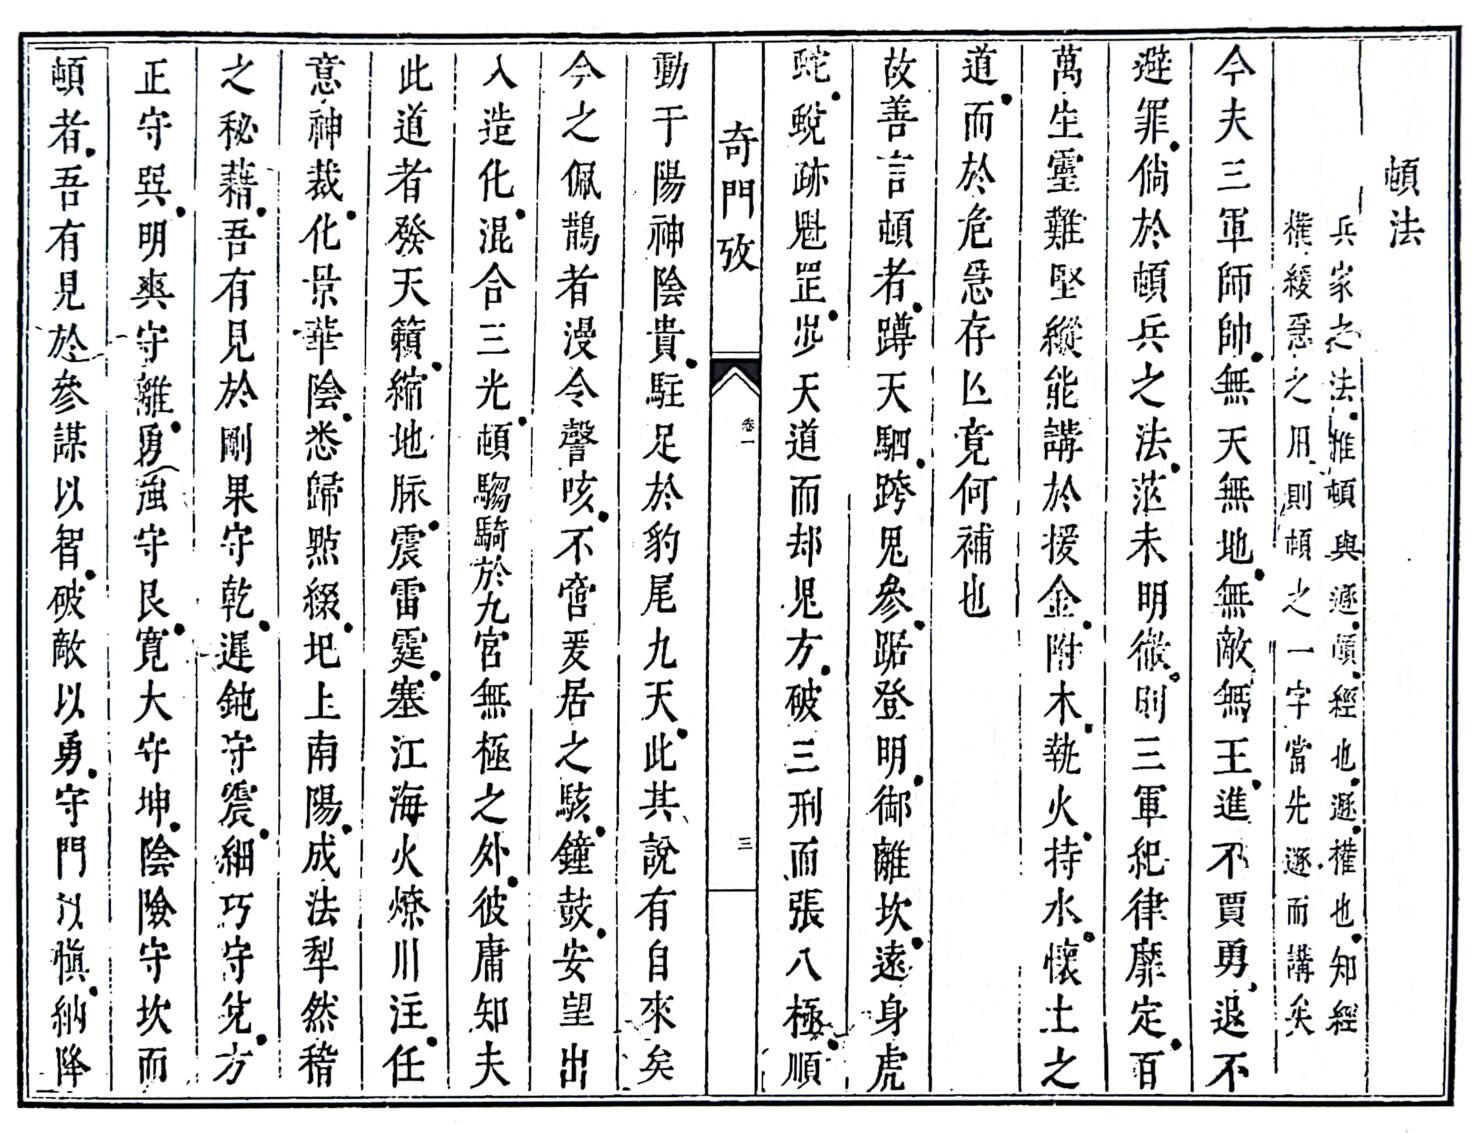 頓法
兵家之法惟頓與遯頓經也遯權也知經
權緩急之用則頓之一字當先遯而講矣
今夫三軍師帥無天無地無敵無王進不賈勇退不
避罪倘於頓兵之法茫未明徹則三軍紀律靡定百
萬生靈難堅縱能講於援金附木執火持水懷土之
道而於危急存亾竟何補也
故善言頓者蹲天駟跨鬼參踞登明御離坎遠身虎
蛇蛻跡魁罡步天道而却鬼方破三刑而張八極順
奇門攷
卷一
三
動于陽神陰貴駐足於豹尾九天此其說有自來矣
今之佩鵲者漫令謦咳不啻爰居之駭鐘鼓安望出
入造化混合三光頓騶騎於九宮無極之外彼庸知夫
此道者發天籟縮地脉震雷霆塞江海火燎川注任
意神裁化景華陰悉歸㸃綴圯上南陽成法犁然稽
之秘藉吾有見於剛果守乾遲鈍守震細巧守兌方
正守巽明爽守離勇強守艮寬大守坤陰險守坎而
頓者吾有見於參謀以智破敵以勇守門以愼納降